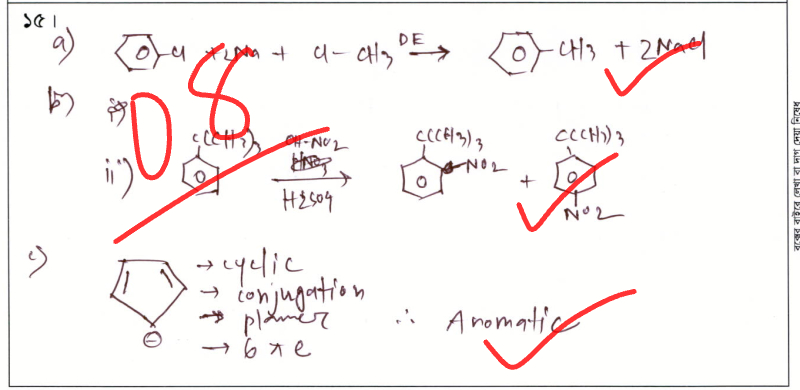 ১৫।
a) Cl + 2Na + Cl - CH3 DE → CH3 + 2NaCl
b) i)
08
ii) C(CH3)3 OH-NO2 H2SO4 → C(CH3)3 NO2 + C(CH3)3 NO2
c) → cyclic
→ conjugation
→ planer ∴ Aromatic
→ 6 π e
⊖
বক্সের বাইরে লেখা বা দাগ দেয়া নিষেধ